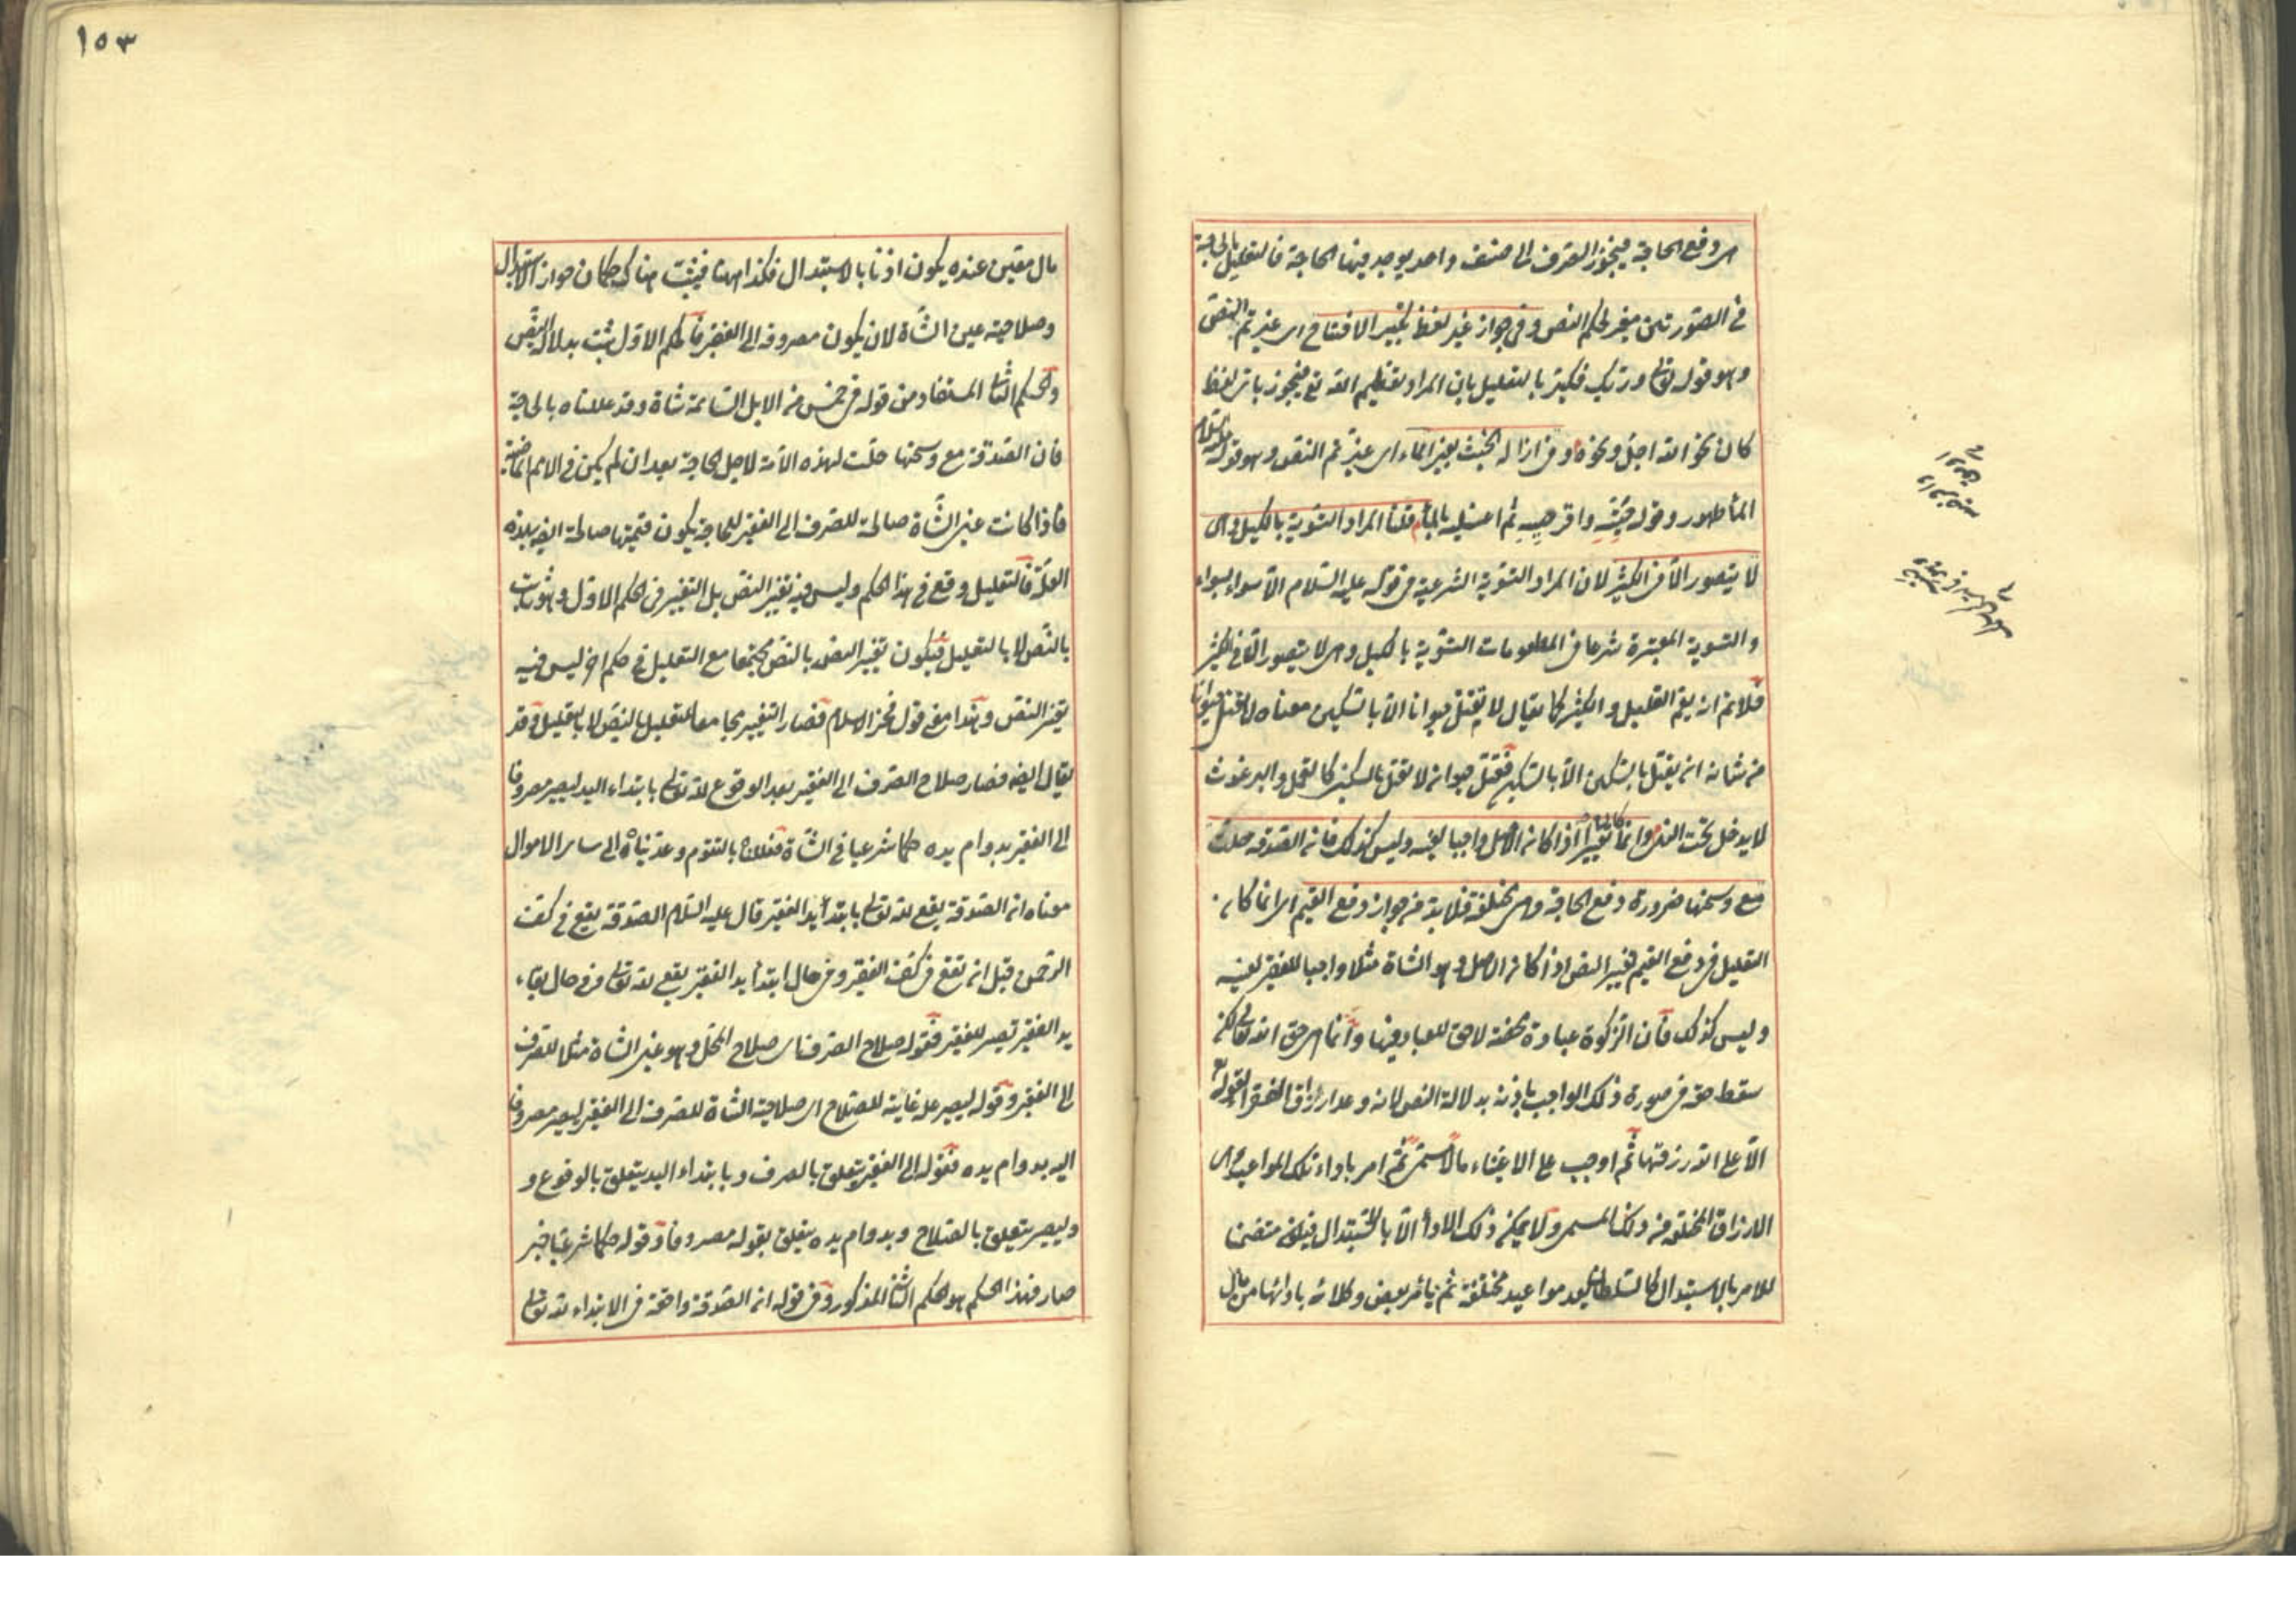 هي دفع الحاجة فيجوز الصرف الى صنف واحد يوجد فيها الحاجة فالتعليل بالحاجة
في الصورتين مغير لحكم النص وفي جواز غير لفظ تكبير الافتتاح اى غيرتم النص
وهو قوله تعالى وربك فكبر بالتعليل بان المراد تعظيم الله تع فيجوز باى لفظ
كان نحو الله اجل ونحوه وفى ازالة الخبث بغير الماء اى غيرتم النص وهو قوله عليه السلام
الماء طهور وقوله حتيه واقرصيه ثم اغسليه بالماء قلنا المراد التسوية بالكيل وهى
لا يتصور الا فى الكثير لان المراد التسوية الشرعية فى قوله عليه السلام الا سواء بسواء
والتسوية المعتبرة شرعا فى المطعومات التسوية بالكيل وهى لا يتصور الا فى الكثير
فلا نم انه يعم القليل والكثير كما يقال لا تقتل حيوانا الا بالسكين معناه لا تقتل حيوانا
من شانه ان يقتل بالسكين الا بالسكين فقتل حيوان لا يقتل بالسكين كالقمل والبرغوث
لا يدخل تحت النهى وانما كان تغييرا اذا كان الاصل واجبا لعينه وليس كذلك فان الصدقة حلت
مع وسخها ضرورة دفع الحاجة وهى مختلفة فلا بد من جواز دفع القيم اى انما كان
التعليل فى دفع القيم تغيير النص اذا كان الاصل وهو الشاة مثلا واجبا للفقير لعينه
وليس كذلك فان الزكوة عبادة محضة لا حق للعباد فيها وانما هى حق الله تعالى لكن
سقط حقه فى صورة ذلك الواجب باذنه بدلالة النص لانه وعد ارزاق الفقراء بقوله تع
الا على الله رزقها ثم اوجب على الاغنياء مالا مسمى ثم امر باداء تلك المواعيد وهى
الارزاق المختلفة من ذلك المسمى ولا يمكن ذلك الاداء الا بالاستبدال فيكون متضمنا
للامر بالاستبدال كالسلطان يعد مواعيد مختلفة ثم يامر بعض وكلائه باداىها من مال
١٥٣
مال معين عنده يكون اذنا بالاستبدال فكذا ههنا فيثبت هناك حكمان جواز الاستبدال
وصلاحية عين الشاة لان يكون مصروفة الى الفقير فالحكم الاول ثبت بدلالة النص
والحكم الثانى المستفاد من قوله فى خمس من الابل السائمة شاة وقد عللناه بالحاجة
فان الصدقة مع وسخها حلت لهذه الامة لاجل الحاجة بعد ان لم يكن فى الامم الماضية
فاذا كانت عين الشاة صالحة للصرف الى الفقير للحاجة يكون قيمتها صالحة ايضا بهذه
العلة فالتعليل وقع فى هذا الحكم وليس فيه تغيير النص بل التغيير فى الحكم الاول وهو ثابت
بالنص لا بالتعليل فيكون تغيير النص بالنص مجتمعا مع التعليل فى حكم اخر ليس فيه
تغيير النص وهذا معنى قول فخر الاسلام فصار التغيير مجامعا للتعليل بالنص لا بالتعليل وقد
يقال ايضا فصار صلاح الصرف الى الفقير بعد الوقوع لله تعالى بابتداء اليد ليصير مصروفا
الى الفقير بدوام يده حكما شرعيا فى الشاة فعللناه بالتقوم وعديناه الى سائر الاموال
معناه ان الصدقة يقع لله تعالى بابتداء يد الفقير قال عليه السلام الصدقة يقع فى كف
الرحمن قبل ان تقع فى كف الفقير وفى حال ابتداء يد الفقير يقع لله تعالى وفى حال بقاء
يد الفقير تصير للفقير فقوله صلاح الصرف اى صلاح المحل وهو عين الشاة مثلا للصرف
الى الفقير وقوله ليصير علة غائية للصلاح اى صلاحية الشاة للصرف الى الفقير ليصير مصروفا
اليه بدوام يده فقوله الى الفقير يتعلق بالصرف وبابتداء اليد يتعلق بالوقوع و
وليصير يتعلق بالصلاح وبدوام يده يتعلق بقوله مصروفا وقوله حكما شرعيا خبر
صار فهذا الحكم هو الحكم الثانى المذكور وفى قوله ان الصدقة واقعة فى الابتداء لله تعالى